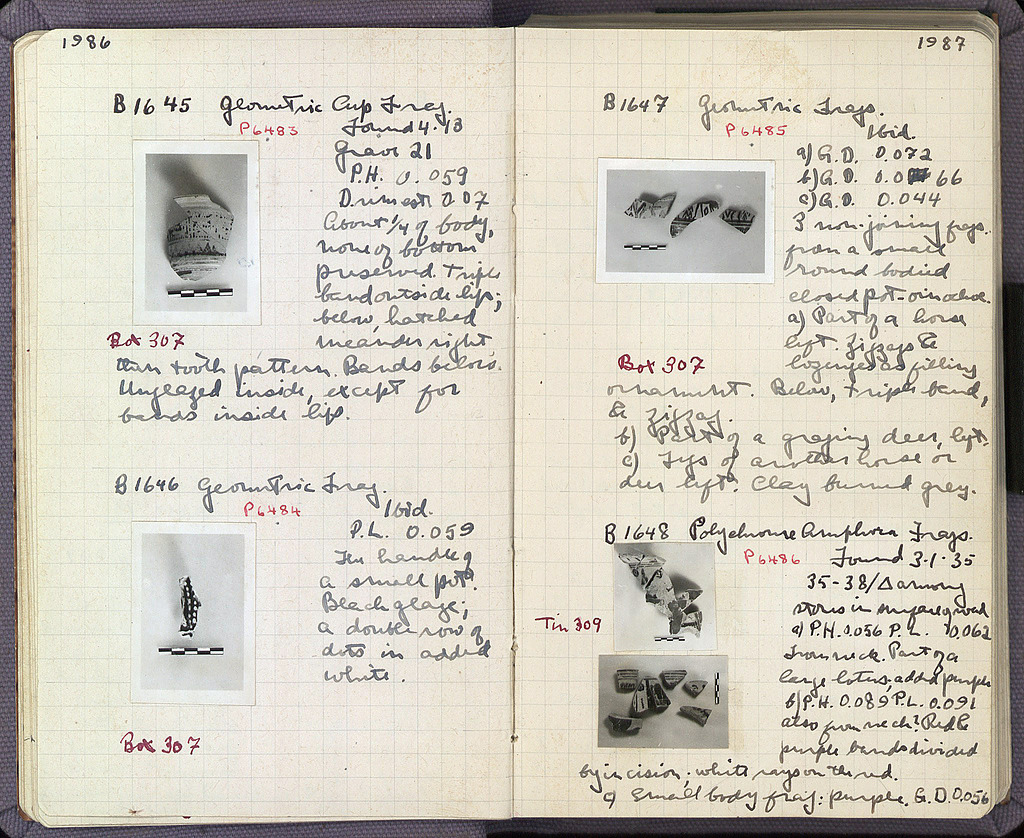 1986
B 1645 Geometric Cup Frag.
P6483 Found 4·13
Grave 21
P.H. 0.059
D. in est 0.07
About 1/4 of body,
none of bottom
preserved. Triple
band outside lip;
below, hatched
meander right,
Box 307
then tooth pattern. Bands below.
Unglazed inside, except for
bands inside lip.
B 1646 Geometric Frag.
P6484 Ibid.
P.L. 0.059
Fr. handle of
a small pot?
Black glaze;
a double row of
dots in added
white.
Box 307
1987
B 1647 Geometric Frags.
P6485 Ibid.
a) G.D. 0.072
b) G.D. 0.0 66
c) G.D. 0.044
3 non-joining frags.
from a small
round bodied
closed pot - oinochoe.
a) Part of a horse
left. Zigzags &
lozenges as filling
Box 307
ornament. Below, triple band,
& zigzag.
b) Part of a grazing deer, left.
c) Legs of another horse or
deer left? Clay burned grey.
B 1648 Polychrome Amphora Frags.
P6486 Found 3·1·35
35-38/Δ among
stones in
a) P.H. 0.056 P.L. 0.062
From neck. Part of a
large lotus; added purple
Tin 309
b) P.H. 0.089 P.L. 0.091
also from neck? Red &
purple bands divided
by incision; white rays on the red.
c) Small body frag: purple. G.D. 0.056